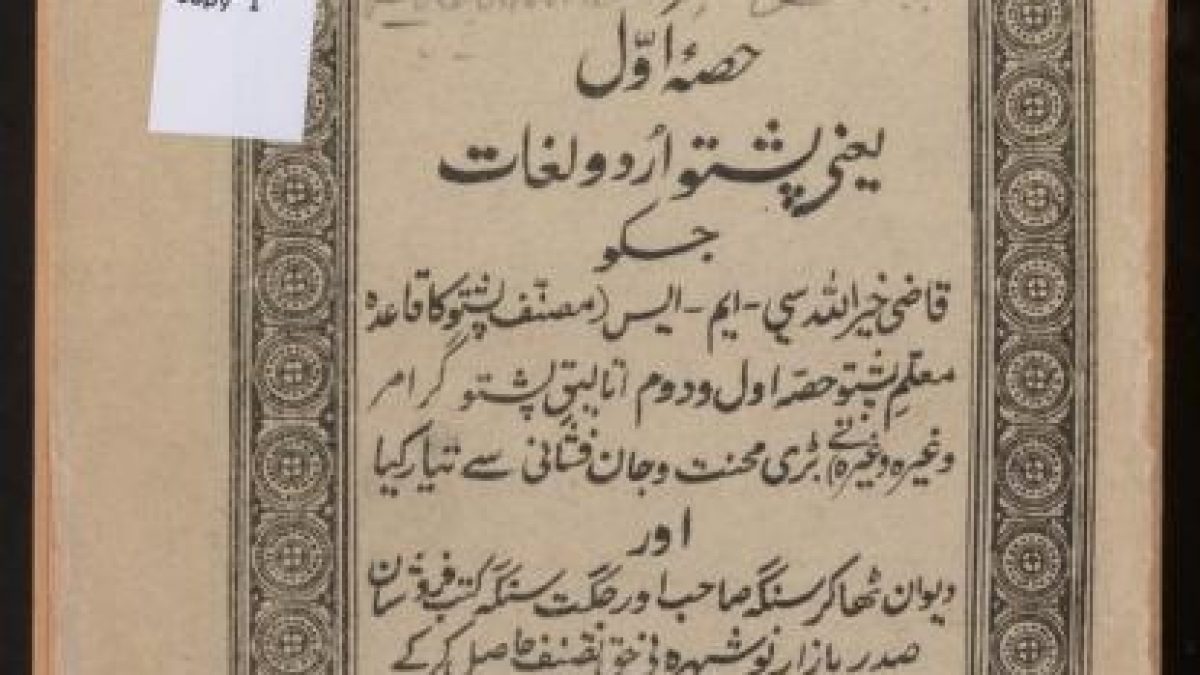 Copy 1
حصۂ اوّل
یعنی پشتو اُردو لغات
جسکو
قاضی خیر اللہ سی - ایم - ایس (مصنّف پشتو کا قاعدہ
معلمِ پشتو حصّہ اول و دوم اتالیقِ پشتو گرامر
وغیرہ وغیرہ) نے بڑی محنت و جان فشانی سے تیار کیا
اور
دیوان ٹھاکر سنگہ صاحب اور جگت سنگہ کتب فروشان
صدر بازار نوشہرہ نی حق تصنف حاصل کر کے